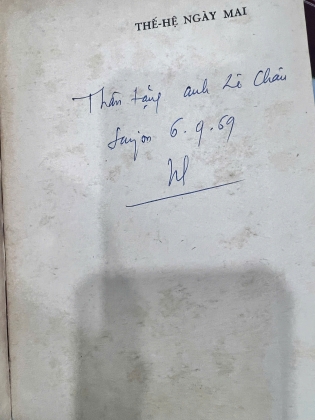 THẾ-HỆ NGÀY MAI
Thân tặng anh Lê Châu
Saigon 6.9.69